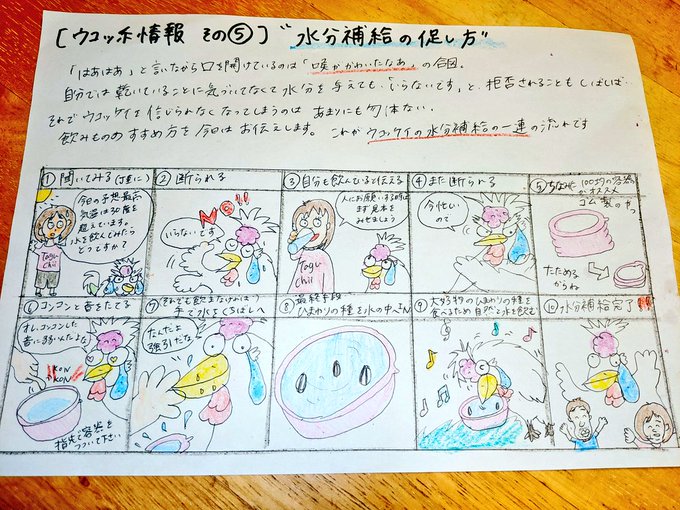 [ウコッケ情報 その⑤] "水分補給の促し方"
「はあはあ」と言いながら口を開けているのは「喉がかわいたなあ」の合図。
自分では乾いていることに気づいてなくて水分を与えても「いらないです」と、拒否されることもしばしば。
それでウコッケイを信じられなくなってしまうのは あまりにも勿体ない。
飲みもののすすめ方を今日は お伝えします。 これが ウコッケイの水分補給の一連の流れです
① 聞いてみる(丁寧に)
今日の予想最高
気温は30度を
超えています。
水を飲んでみたら
どうですか?
Tagu
chii
② 断られる
No!!
いらないです
③ 自分も飲んでいると伝える
人にお願いする時は
まず見本を
みせましょう
Tagu
Chii
④ また断られる
今忙しい
ので
⑤ ちなみに 100均の容器
がオススメ
ゴム製のやつ
たためる
からね
⑥ コンコンと音をたてる
オレ、コンコンした
音に弱いんだよな
KON
KON
指先で容器を
つついて下さい
⑦ それでも飲まなければ
手で水をくちばしへ
なんだよ
強引だな
⑧ 最終手段
ひまわりの種を水の中へin
⑨ 大好物のひまわりの種を
食べるため自然と水を飲む
⑩ 水分補給完了!!